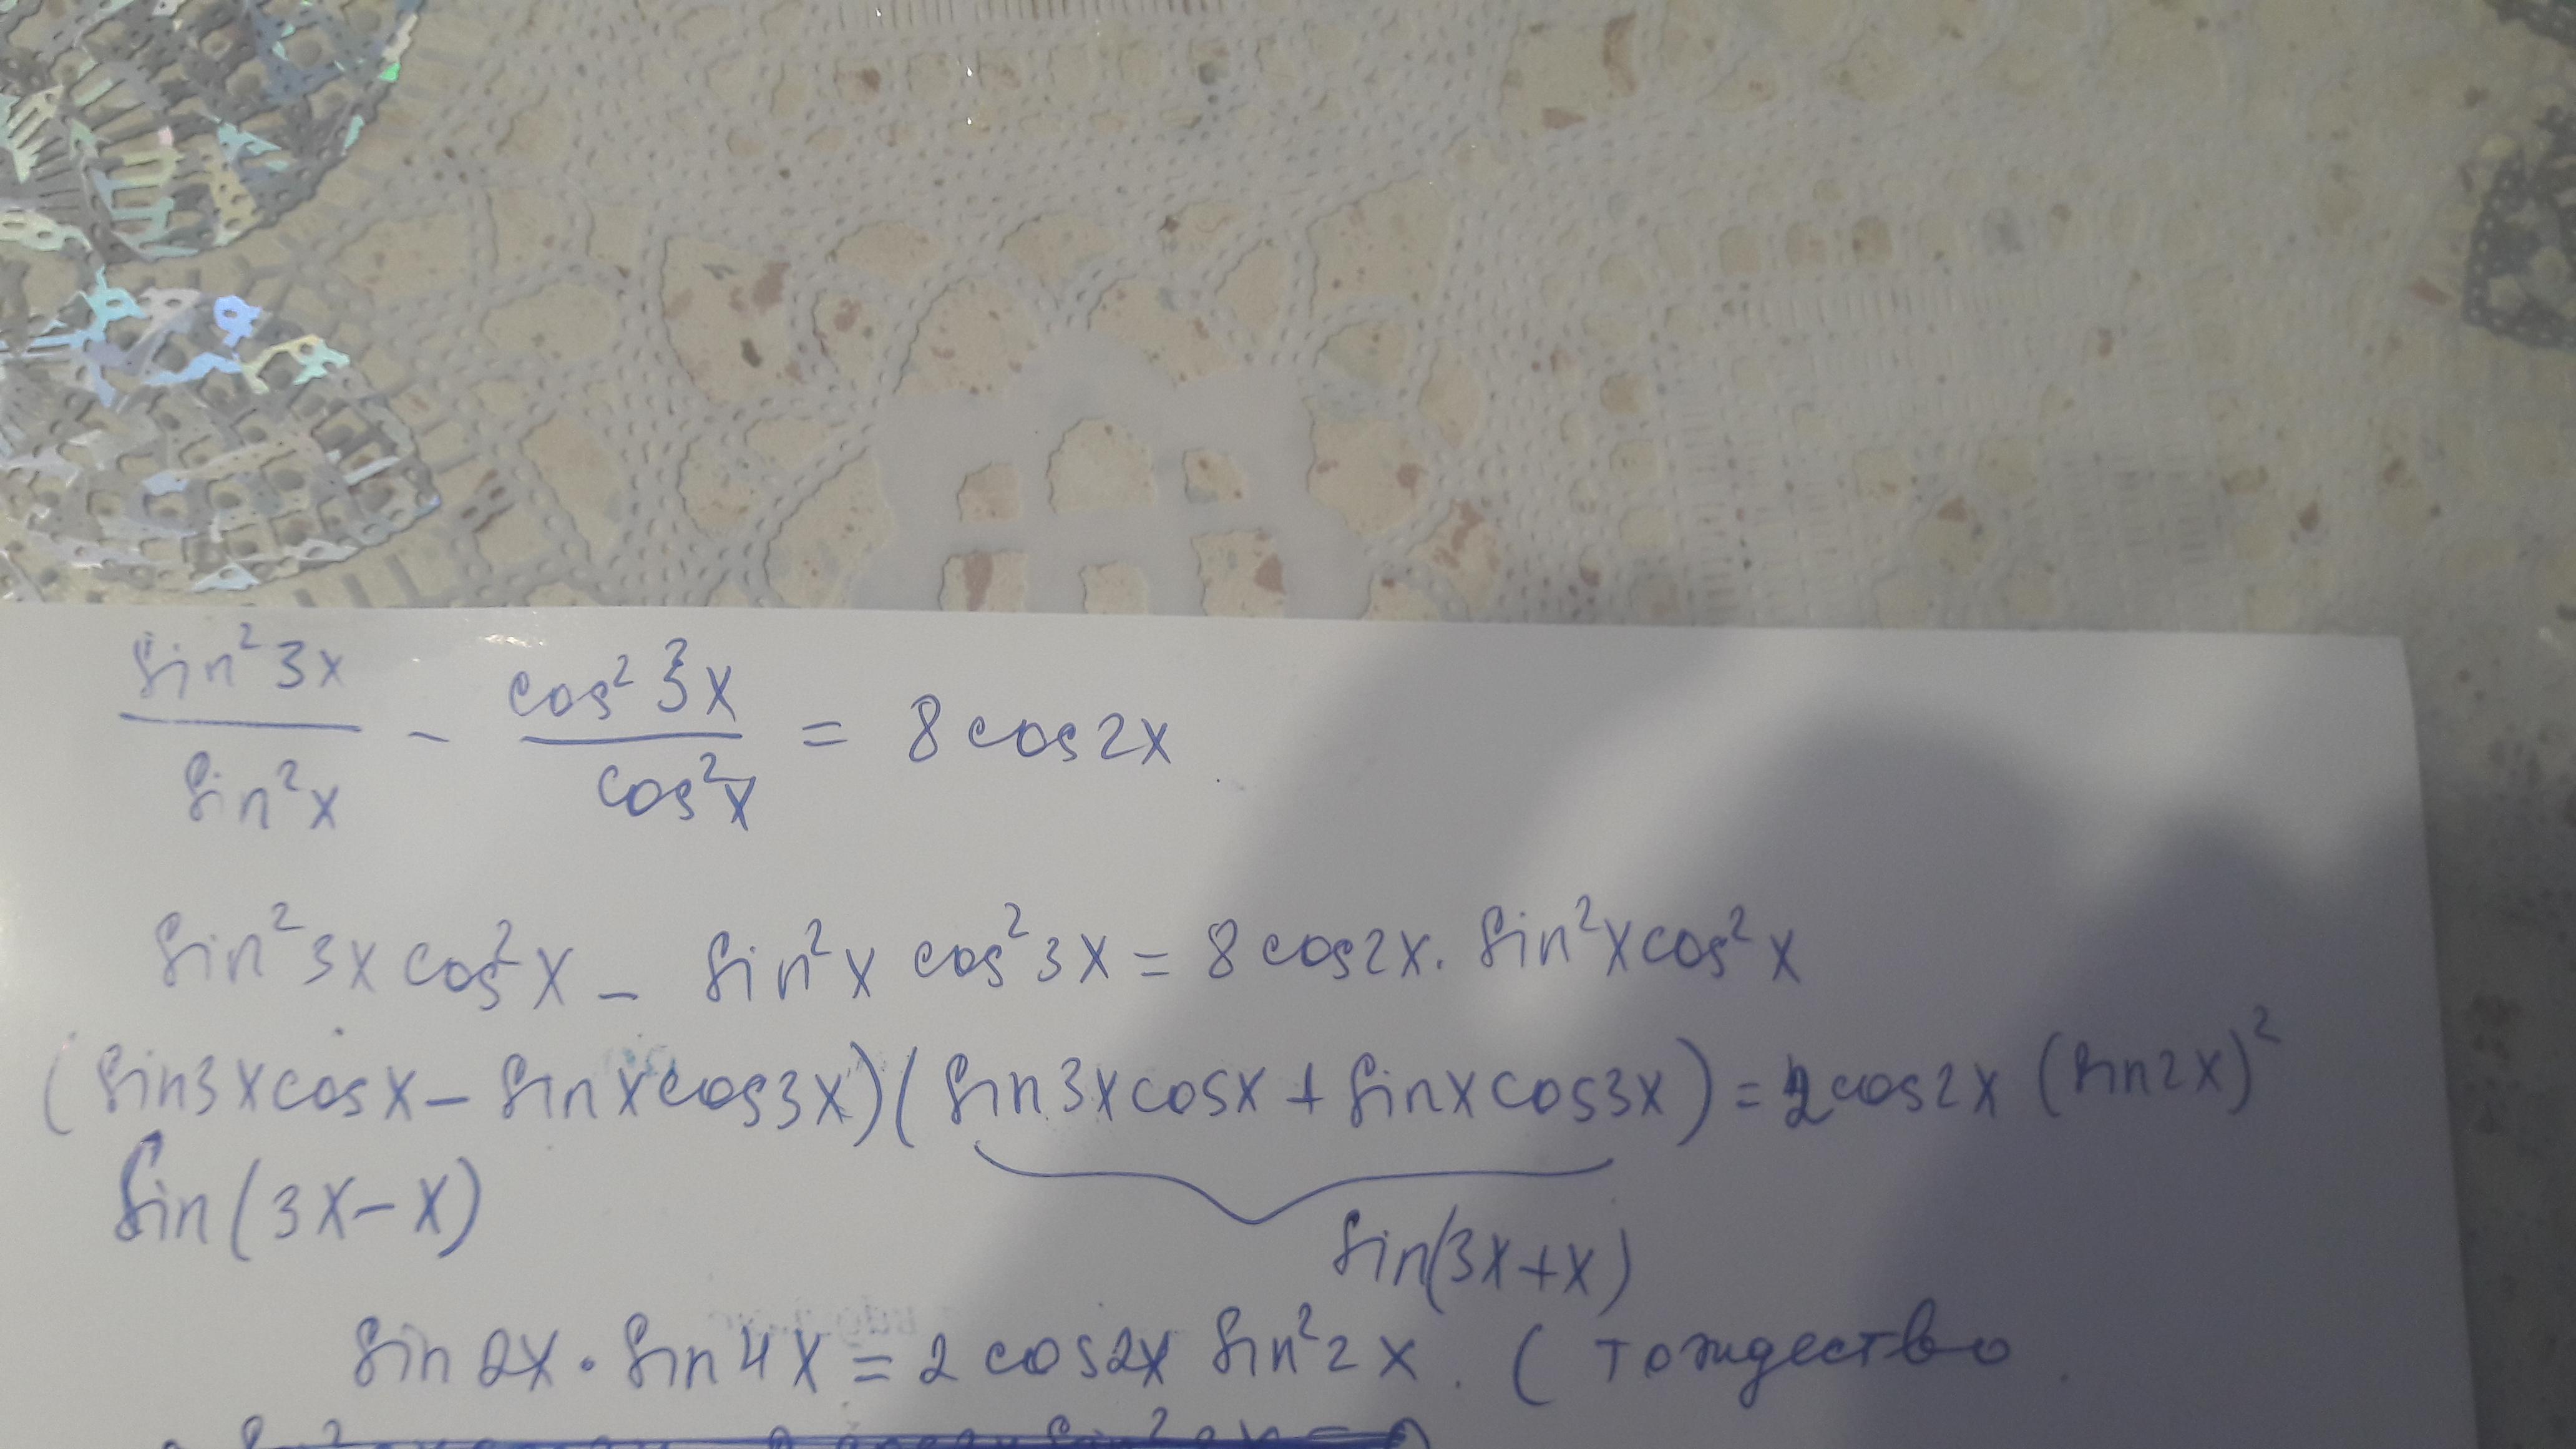 sin²3x / sin²x - cos²3x / cos²x = 8cos2x
sin²3x cos²x - sin²x cos²3x = 8cos2x · sin²x cos²x
(sin3x cosx - sinx cos3x)(sin3x cosx + sinx cos3x) = 2cos2x (sin2x)²
sin(3x-x)
sin(3x+x)
sin2x · sin4x = 2cos2x sin²2x. (тождество